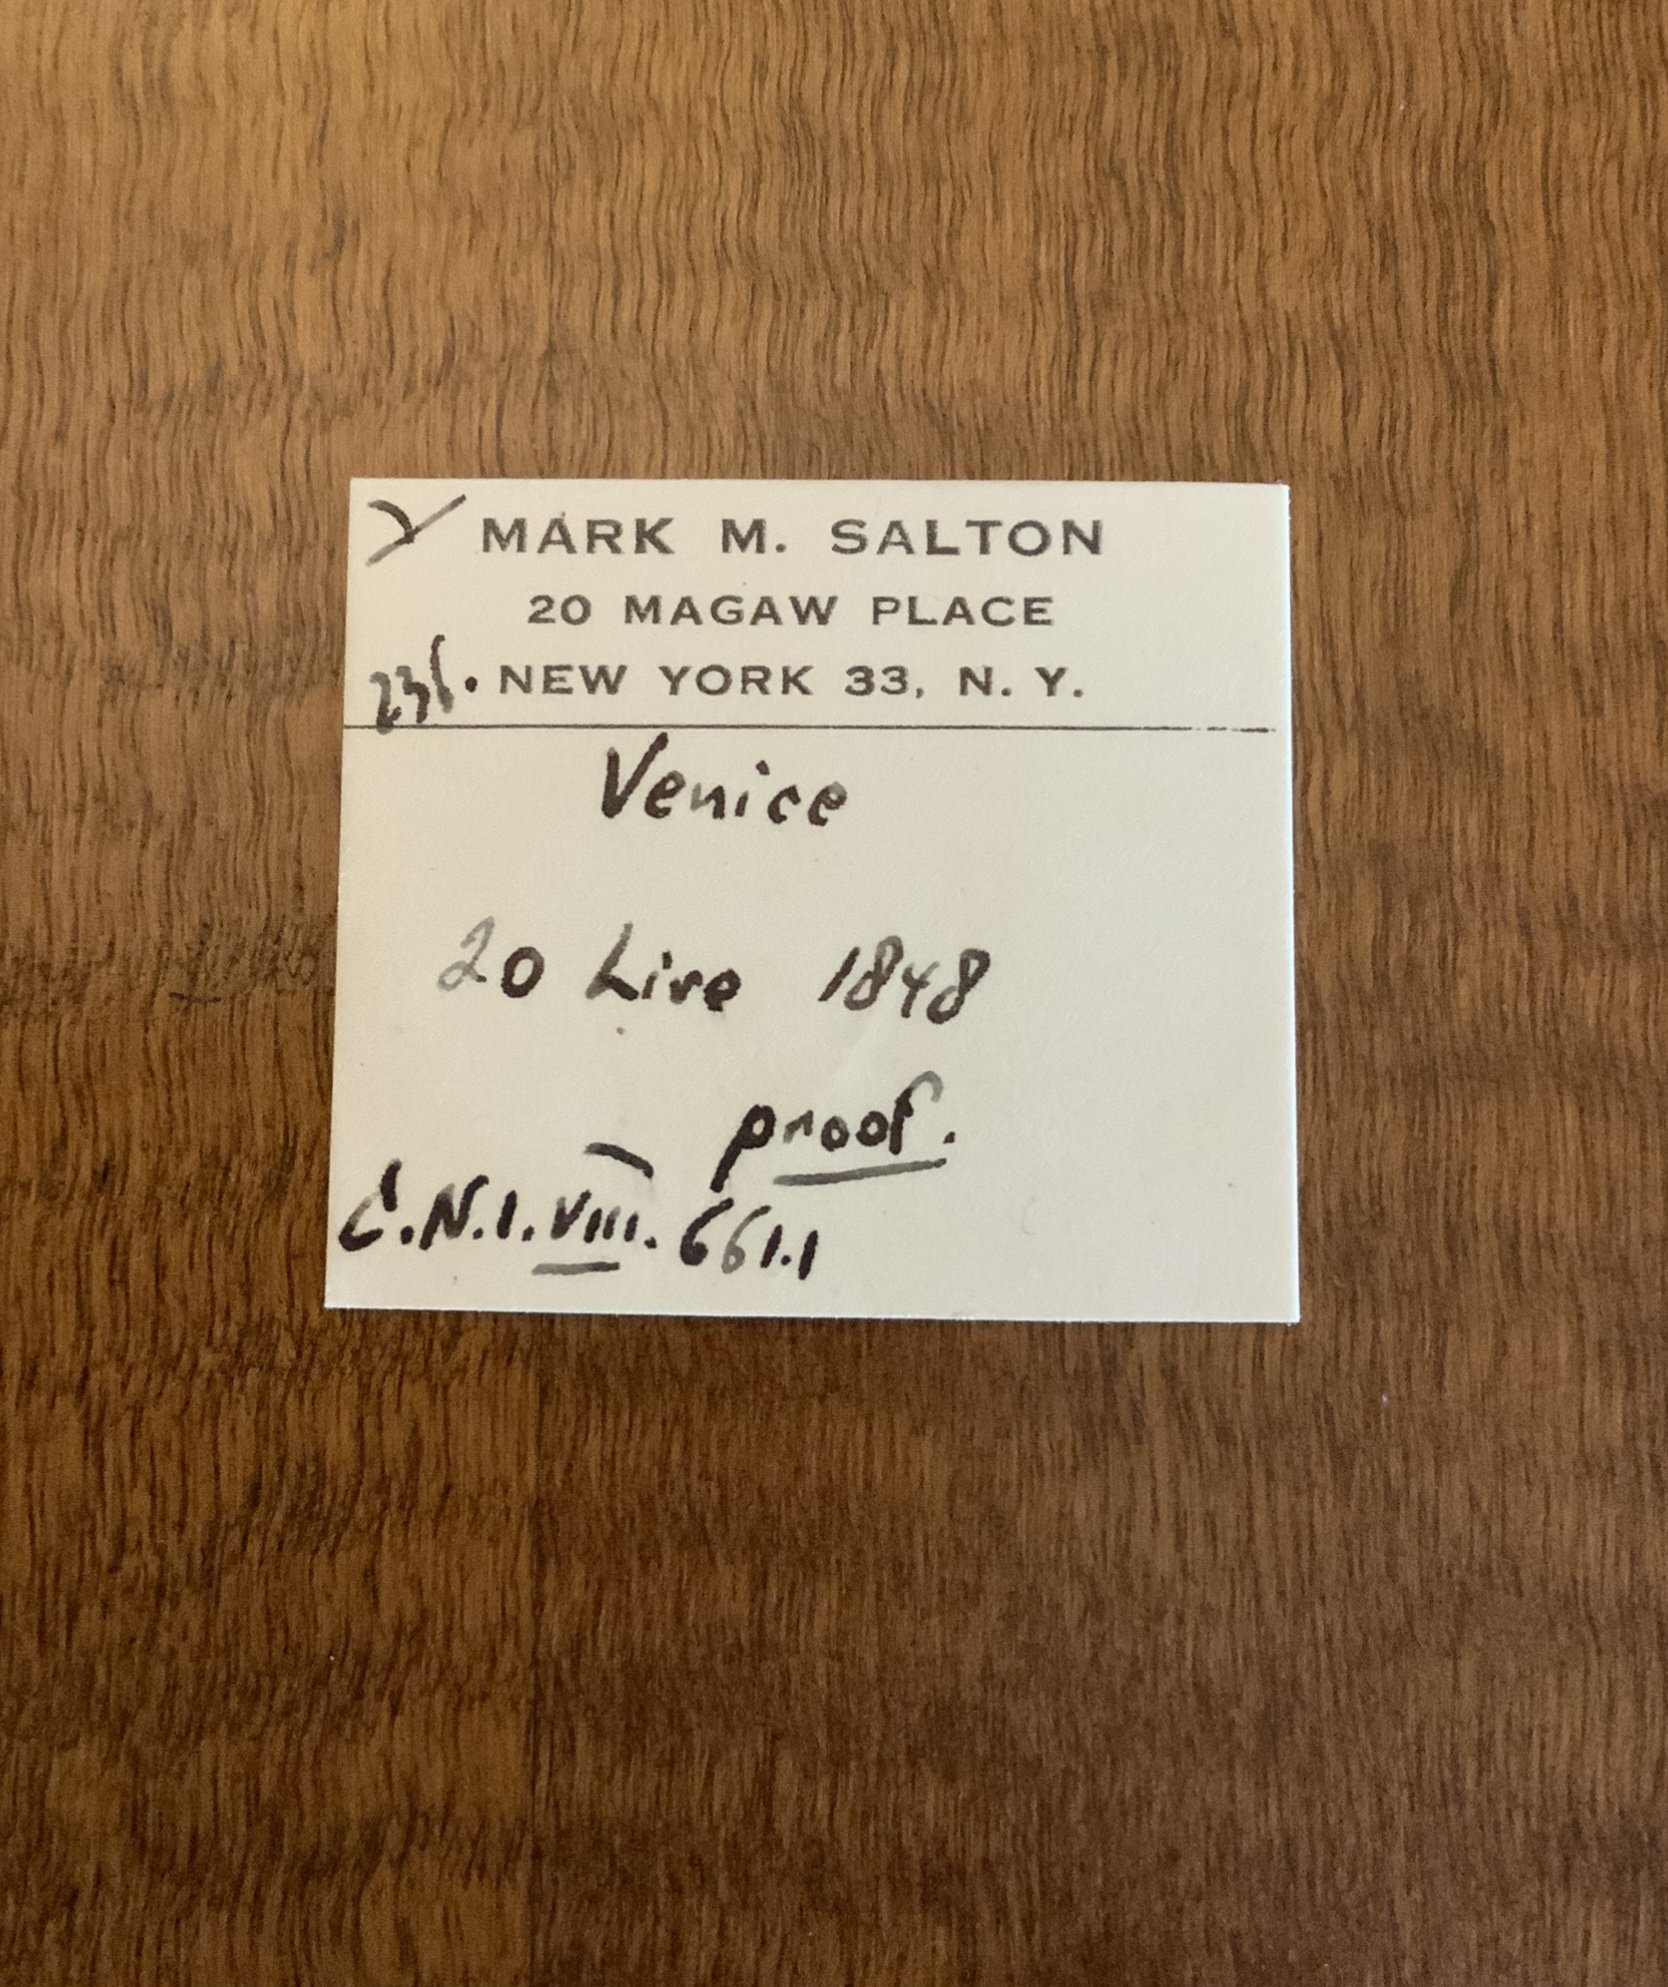 MARK M. SALTON
20 MAGAW PLACE
NEW YORK 33, N. Y.
Venice
20 Lire 1848
proof.
C.N.I. VIII. 661.1